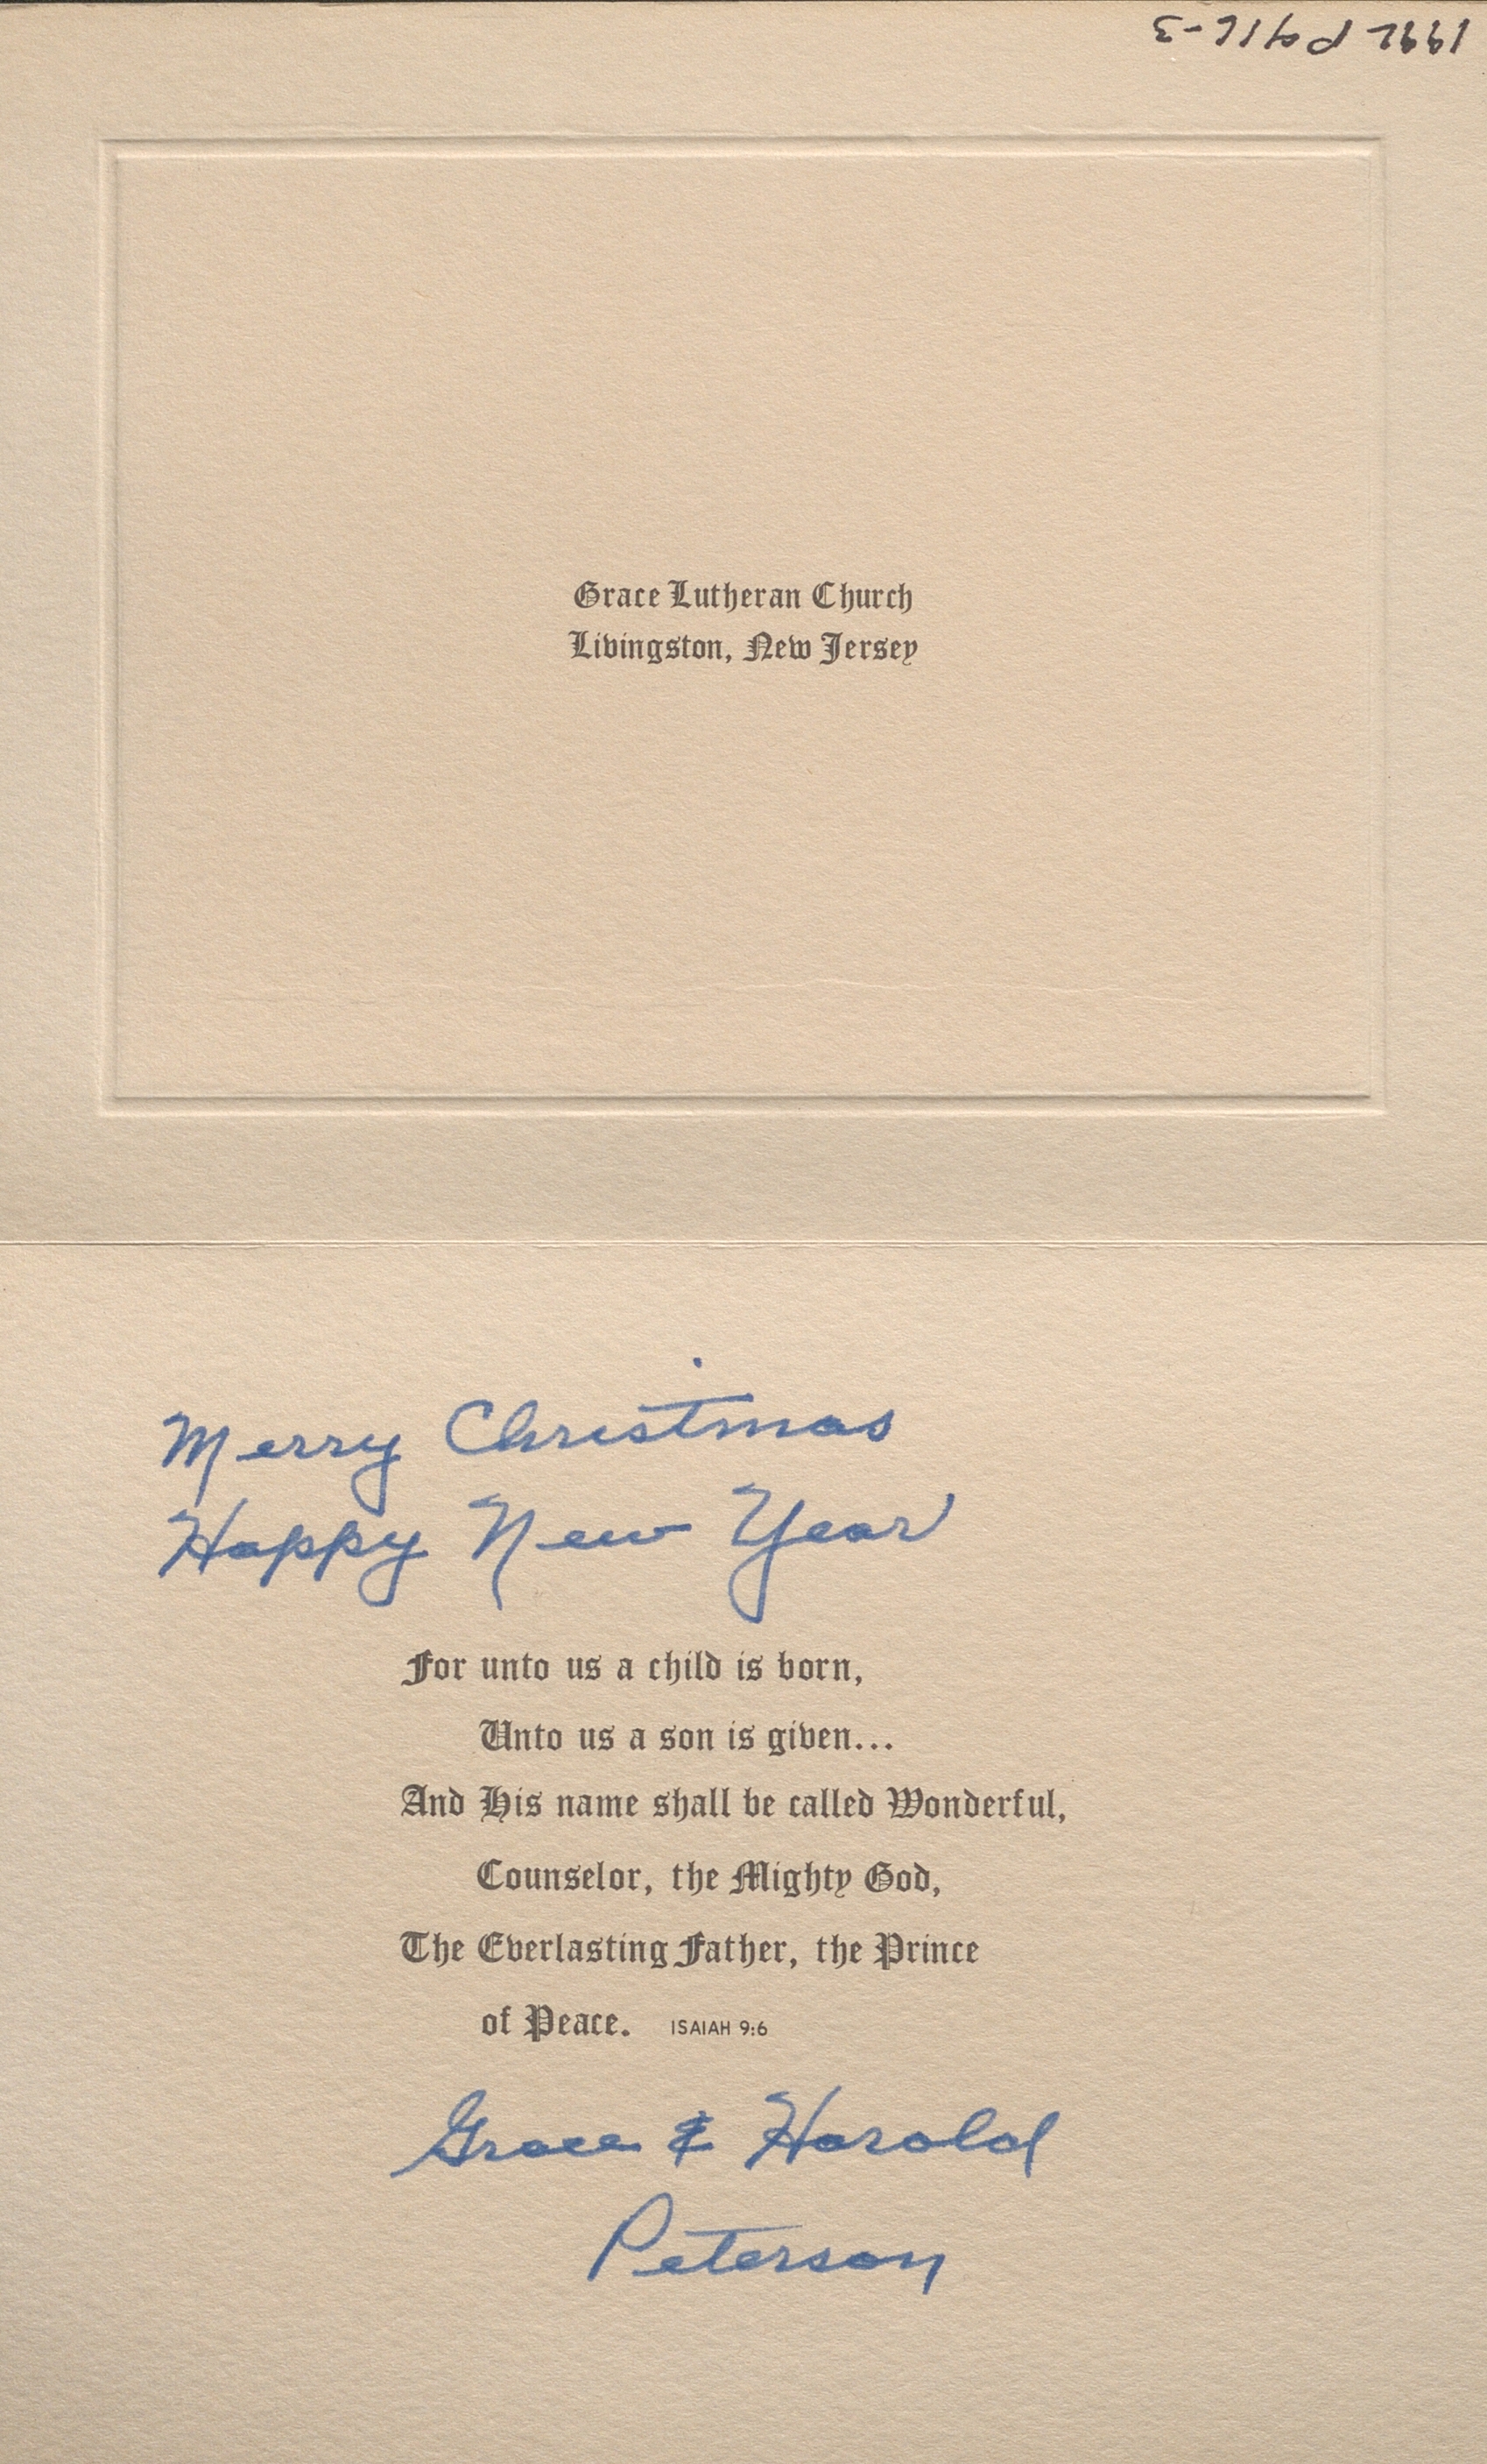 1992 P916-3
Grace Lutheran Church
Livingston, New Jersey
Merry Christmas
Happy New Year
For unto us a child is born,
Unto us a son is given...
And His name shall be called Wonderful,
Counselor, the Mighty God,
The Everlasting Father, the Prince
of Peace. ISAIAH 9:6
Grace & Harold
Peterson